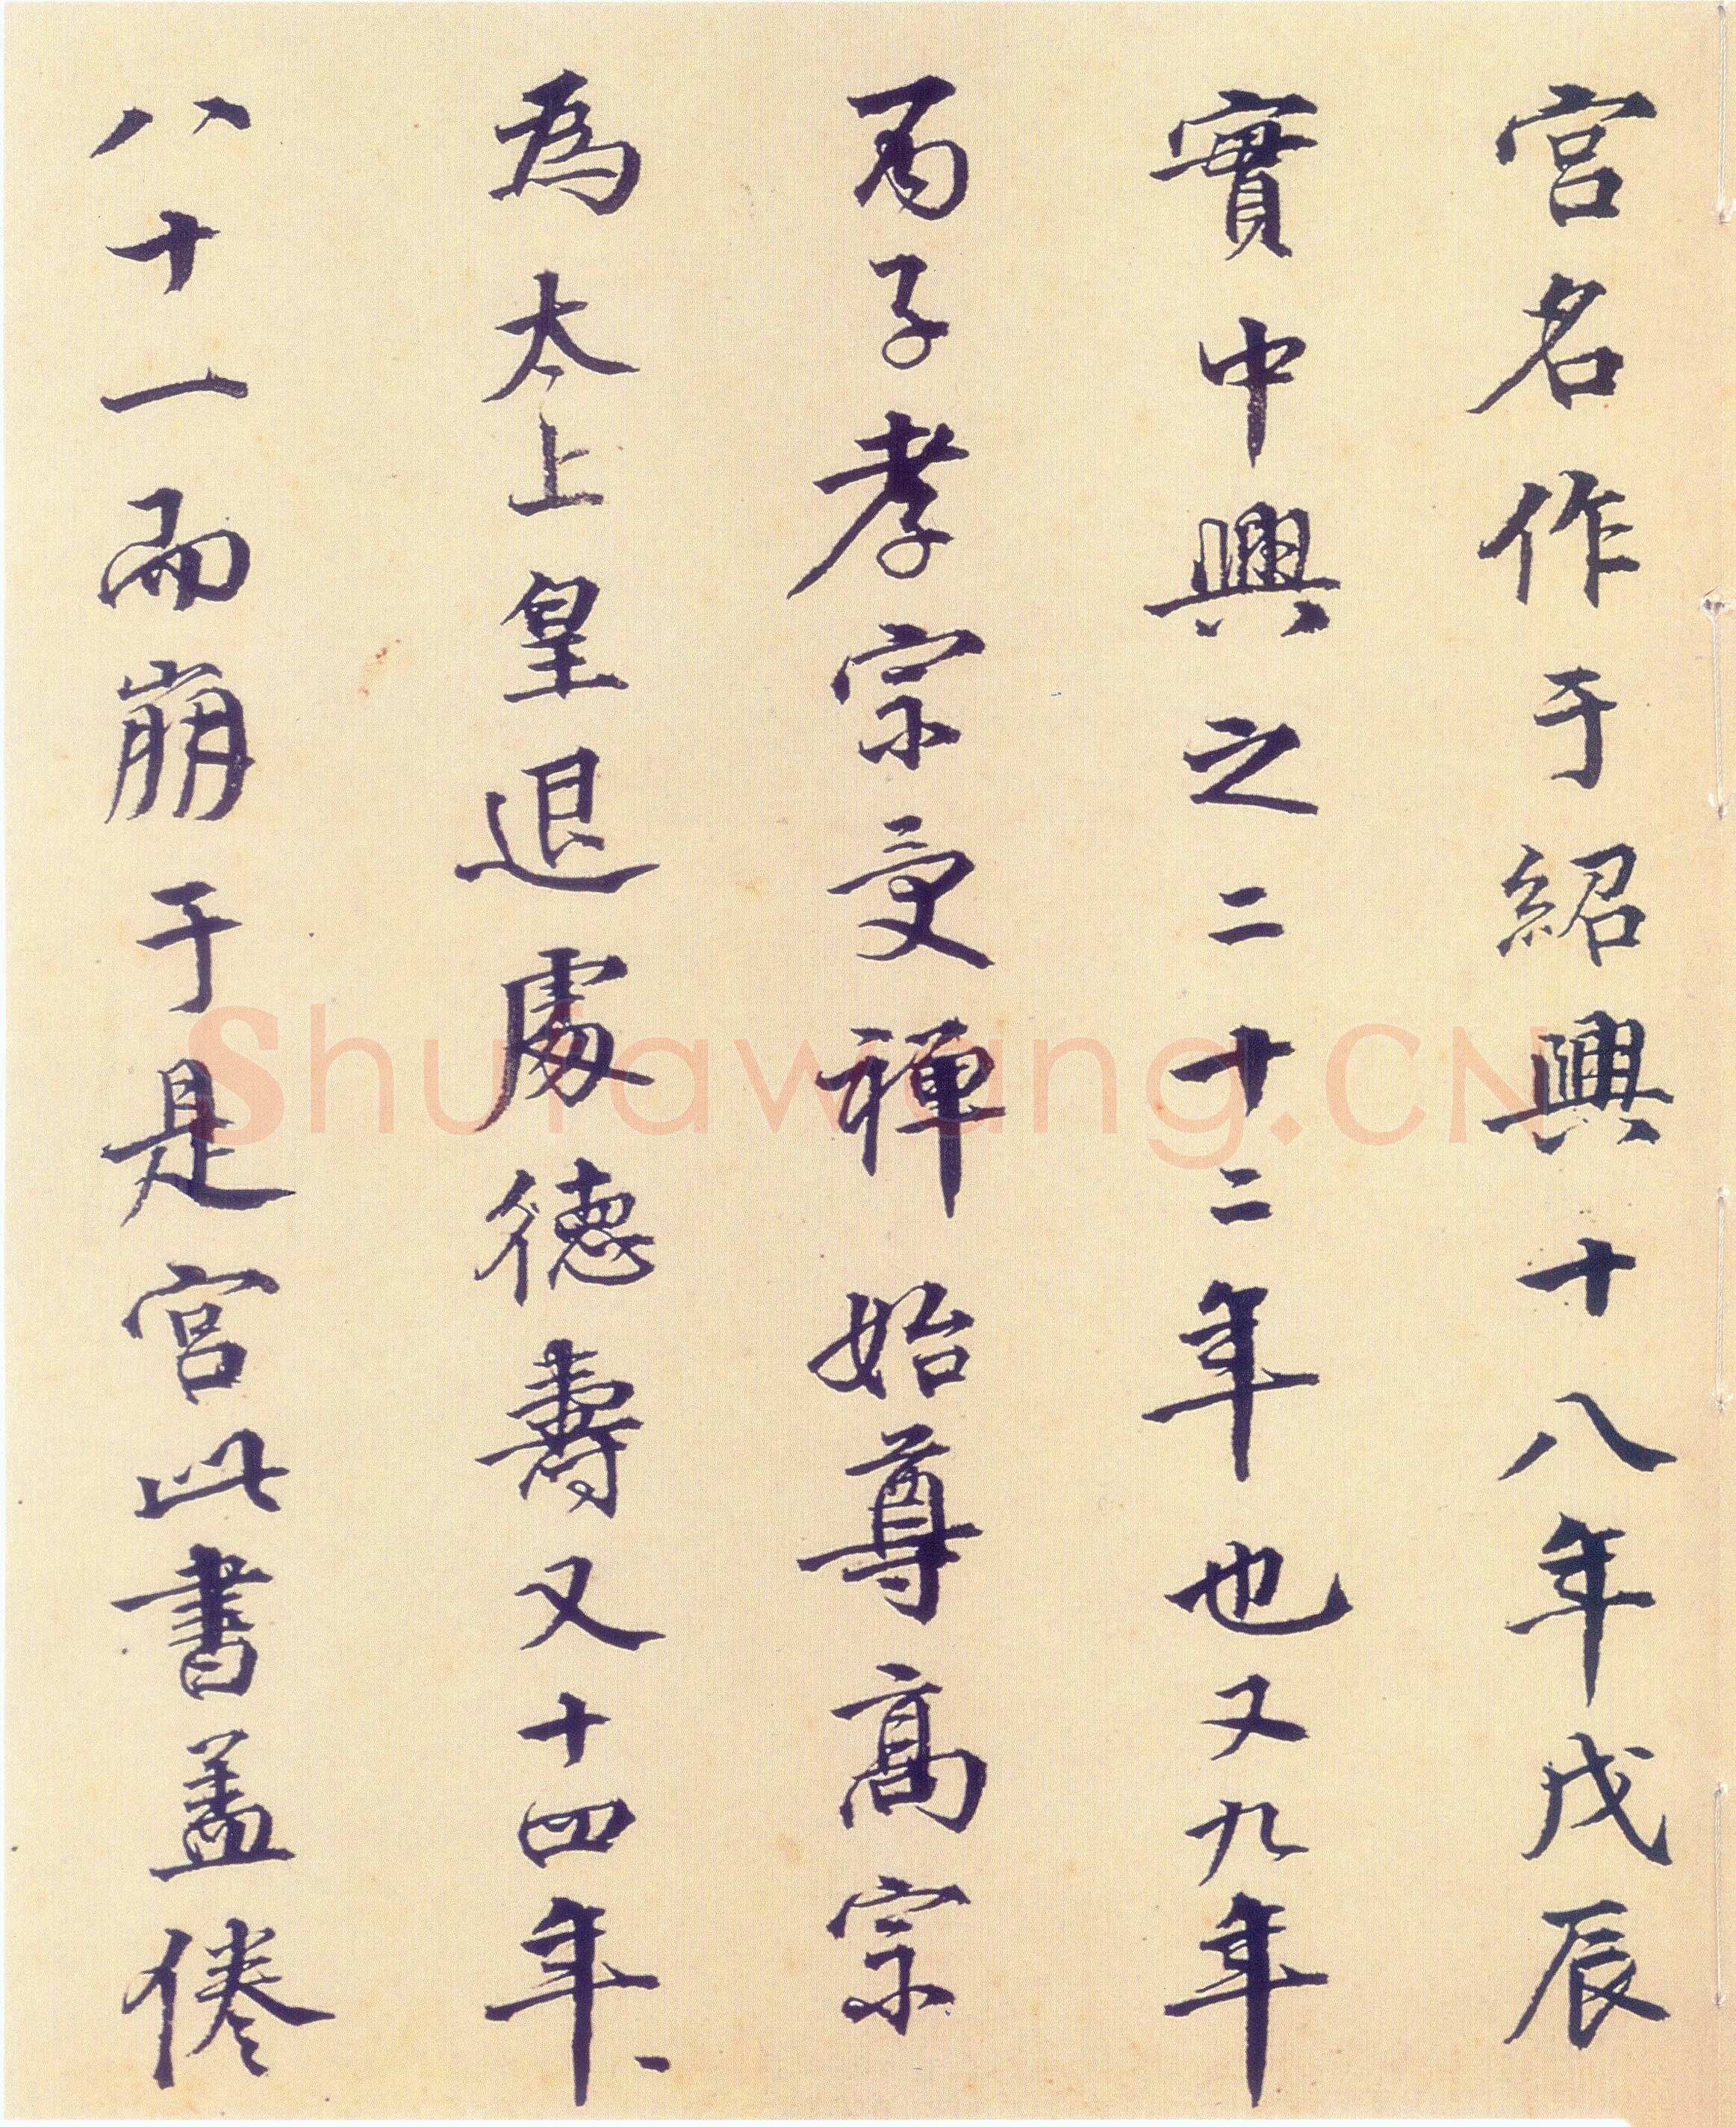 宮名作于紹興十八年戊辰
實中興之二十二年也又九年
丙子孝宗受禪始尊高宗
為太上皇退處德壽又十四年、
八十一而崩于是宮此書盖倦
Shufawang.CN